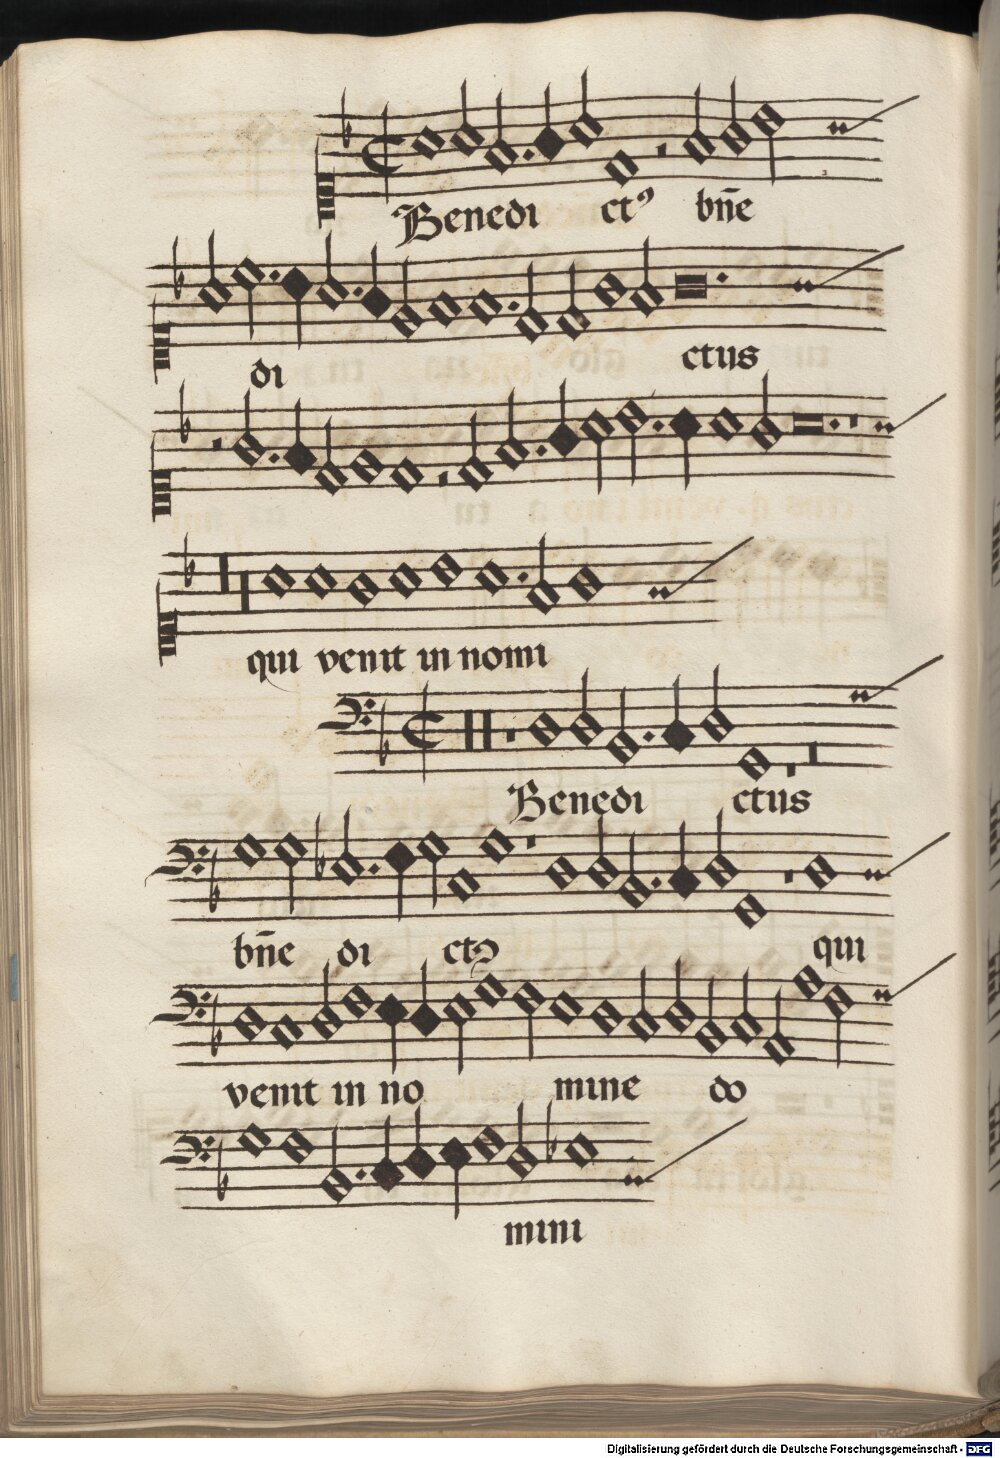 Benedi ctꝰ bn̄e
di ctus
qui venit in nomi
Benedi ctus
bn̄e di ctꝰ qui
venit in no mine do
mini
Digitalisierung gefördert durch die Deutsche Forschungsgemeinschaft - DFG